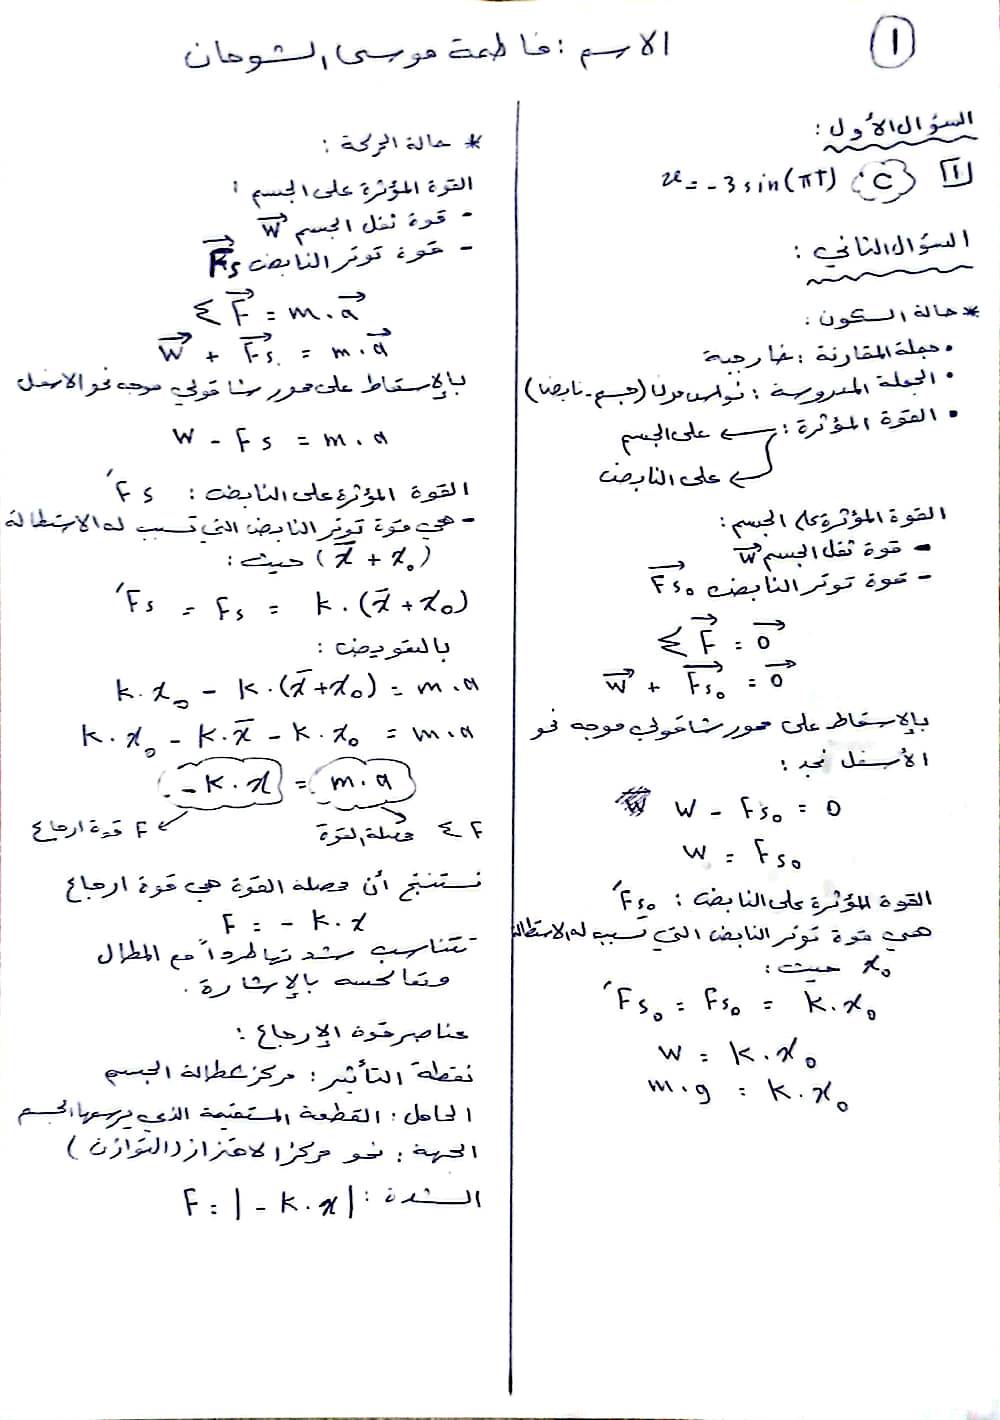 1
الاسم : فاطمة موسى الشوحان
السؤال الأول :
1 C v = -3 sin(πt)
السؤال الثاني :
* حالة السكون :
• جملة المقارنة : خارجية
• الجملة المدروسة : نواس مرن (جسم - نابض)
• القوة المؤثرة : ← على الجسم
← على النابض
القوة المؤثرة على الجسم :
- قوة ثقل الجسم W⃗
- قوة توتر النابض F⃗s₀
Σ F⃗ = 0⃗
W⃗ + F⃗s₀ = 0⃗
بالإسقاط على محور شاقولي موجه نحو
الأسفل نجد :
W - Fs₀ = 0
W = Fs₀
القوة المؤثرة على النابض : F's₀
هي قوة توتر النابض التي تسبب له الاستطالة
x₀ حيث :
F's₀ = Fs₀ = k.x₀
W = k.x₀
m.g = k.x₀
* حالة الحركة :
القوة المؤثرة على الجسم :
- قوة ثقل الجسم W⃗
- قوة توتر النابض F⃗s
Σ F⃗ = m.a⃗
W⃗ + F⃗s = m.a⃗
بالإسقاط على محور شاقولي موجه نحو الاسفل
W - Fs = m.a
القوة المؤثرة على النابض : F's
- هي قوة توتر النابض التي تسبب له الاستطالة
(x̄ + x₀) حيث :
F's = Fs = k.(x̄ + x₀)
بالتعويض :
k.x₀ - k.(x̄ + x₀) = m.a
k.x₀ - k.x̄ - k.x₀ = m.a
-k.x = m.a
Σ F محصلة القوة F قوة ارجاع
نستنتج أن محصلة القوة هي قوة ارجاع
F = - k.x
تتناسب شدتها طرداً مع المطال
وتعاكسه بالإشارة .
عناصر قوة الإرجاع :
نقطة التأثير : مركز عطالة الجسم
الحامل : القطعة المستقيمة الذي يرسمها الجسم
الجهة : نحو مركز الاهتزاز (التوازن)
الشدة : F = |- k.x|